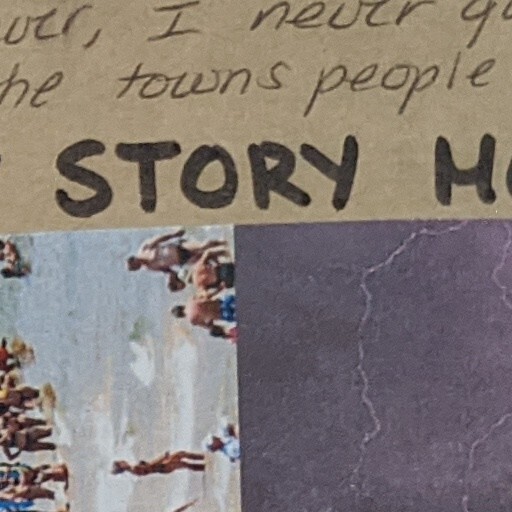 ver, I never
he towns people
STORY